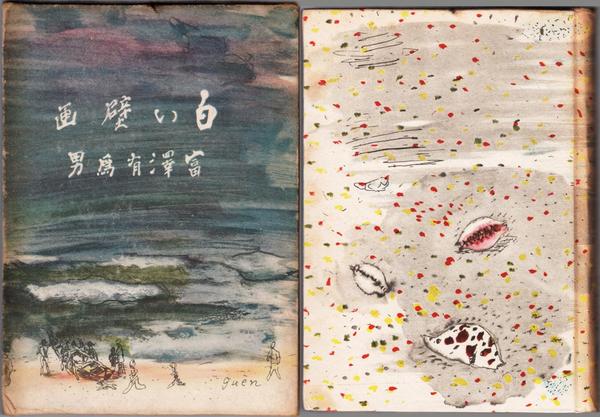 白い壁画
富澤有爲男
guën